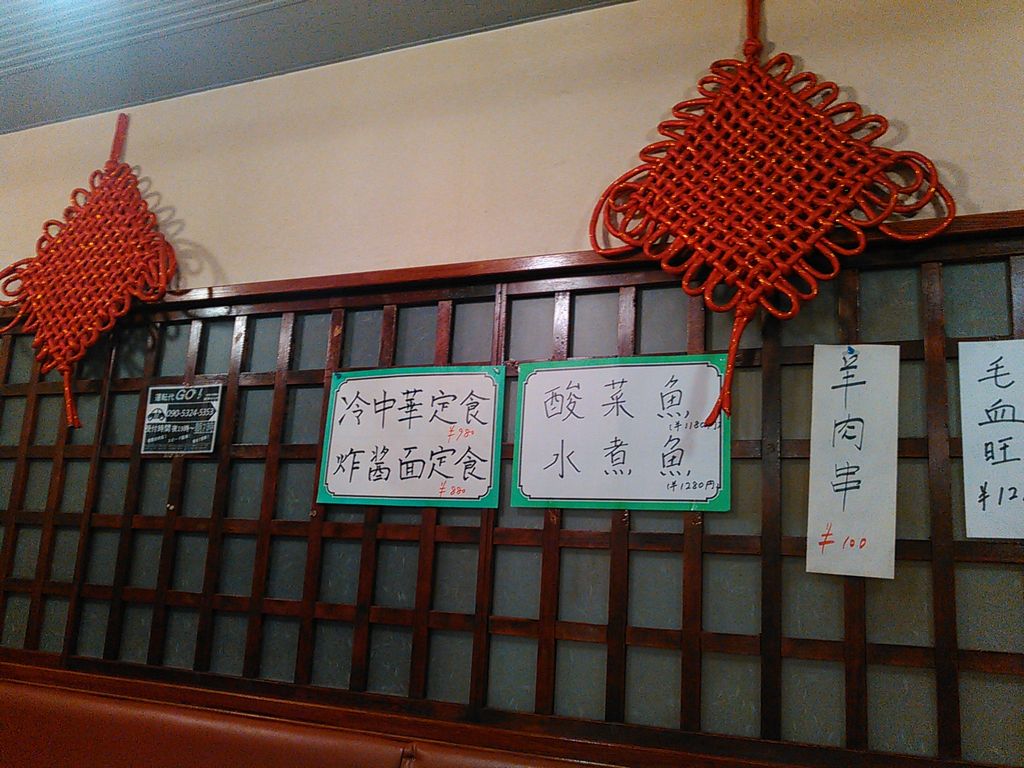 運転代GO!
090-5324-5353
受付時間 夜19時〜
冷中華定食
¥980
炸醤面定食
¥880
酸菜魚
水煮魚
(半1280円)
羊肉串
¥100
毛血旺
¥12